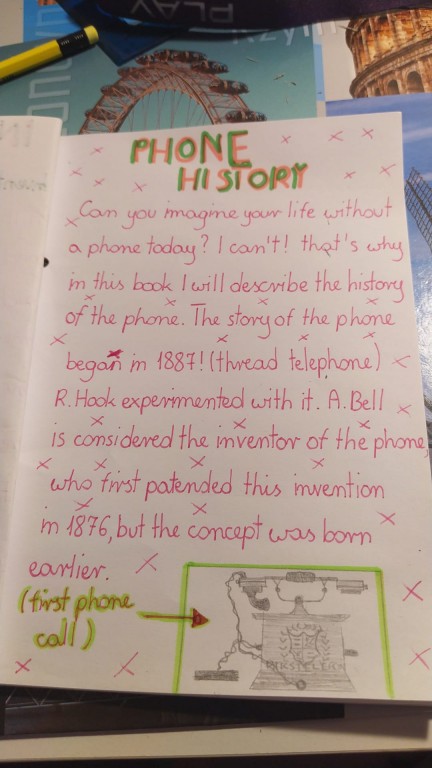 PLAY
PHONE
HISTORY
Can you imagine your life without
a phone today? I can't! that's why
in this book I will describe the history
of the phone. The story of the phone
began in 1887! (thread telephone)
R. Hook experimented with it. A. Bell
is considered the inventor of the phone,
who first patended this invention
in 1876, but the concept was born
earlier.
(first phone
call)